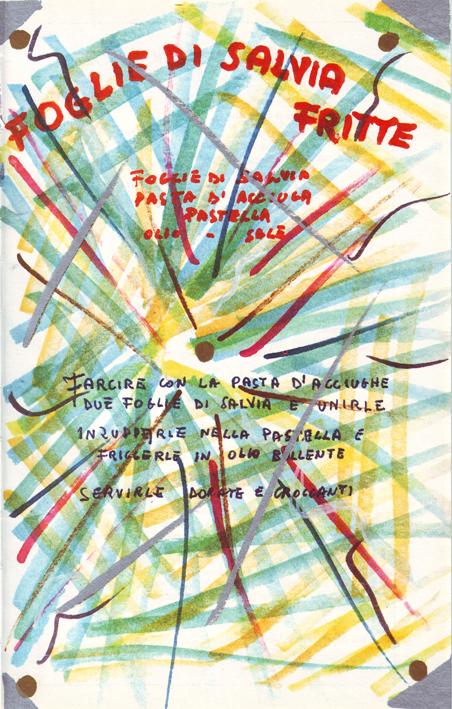 FOGLIE DI SALVIA
FRITTE
FOGLIE DI SALVIA
PASTA D'ACCIUGA
PASTELLA
OLIO - SALE
FARCIRE CON LA PASTA D'ACCIUGHE
DUE FOGLIE DI SALVIA E UNIRLE
INZUPPARLE NELLA PASTELLA E
FRIGGERLE IN OLIO BOLLENTE
SERVIRLE DORATE E CROCCANTI